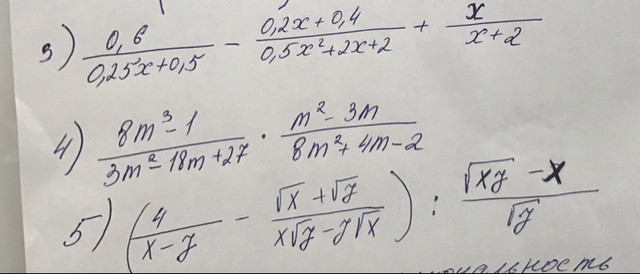 3) 0,6/(0,25x+0,5) − (0,2x+0,4)/(0,5x²+2x+2) + x/(x+2)
4) (8m³−1)/(3m²−18m+27) · (m²−3m)/(8m²+4m−2)
5) (4/(x−y) − (√x+√y)/(x√y−y√x)) : (√xy −x)/√y